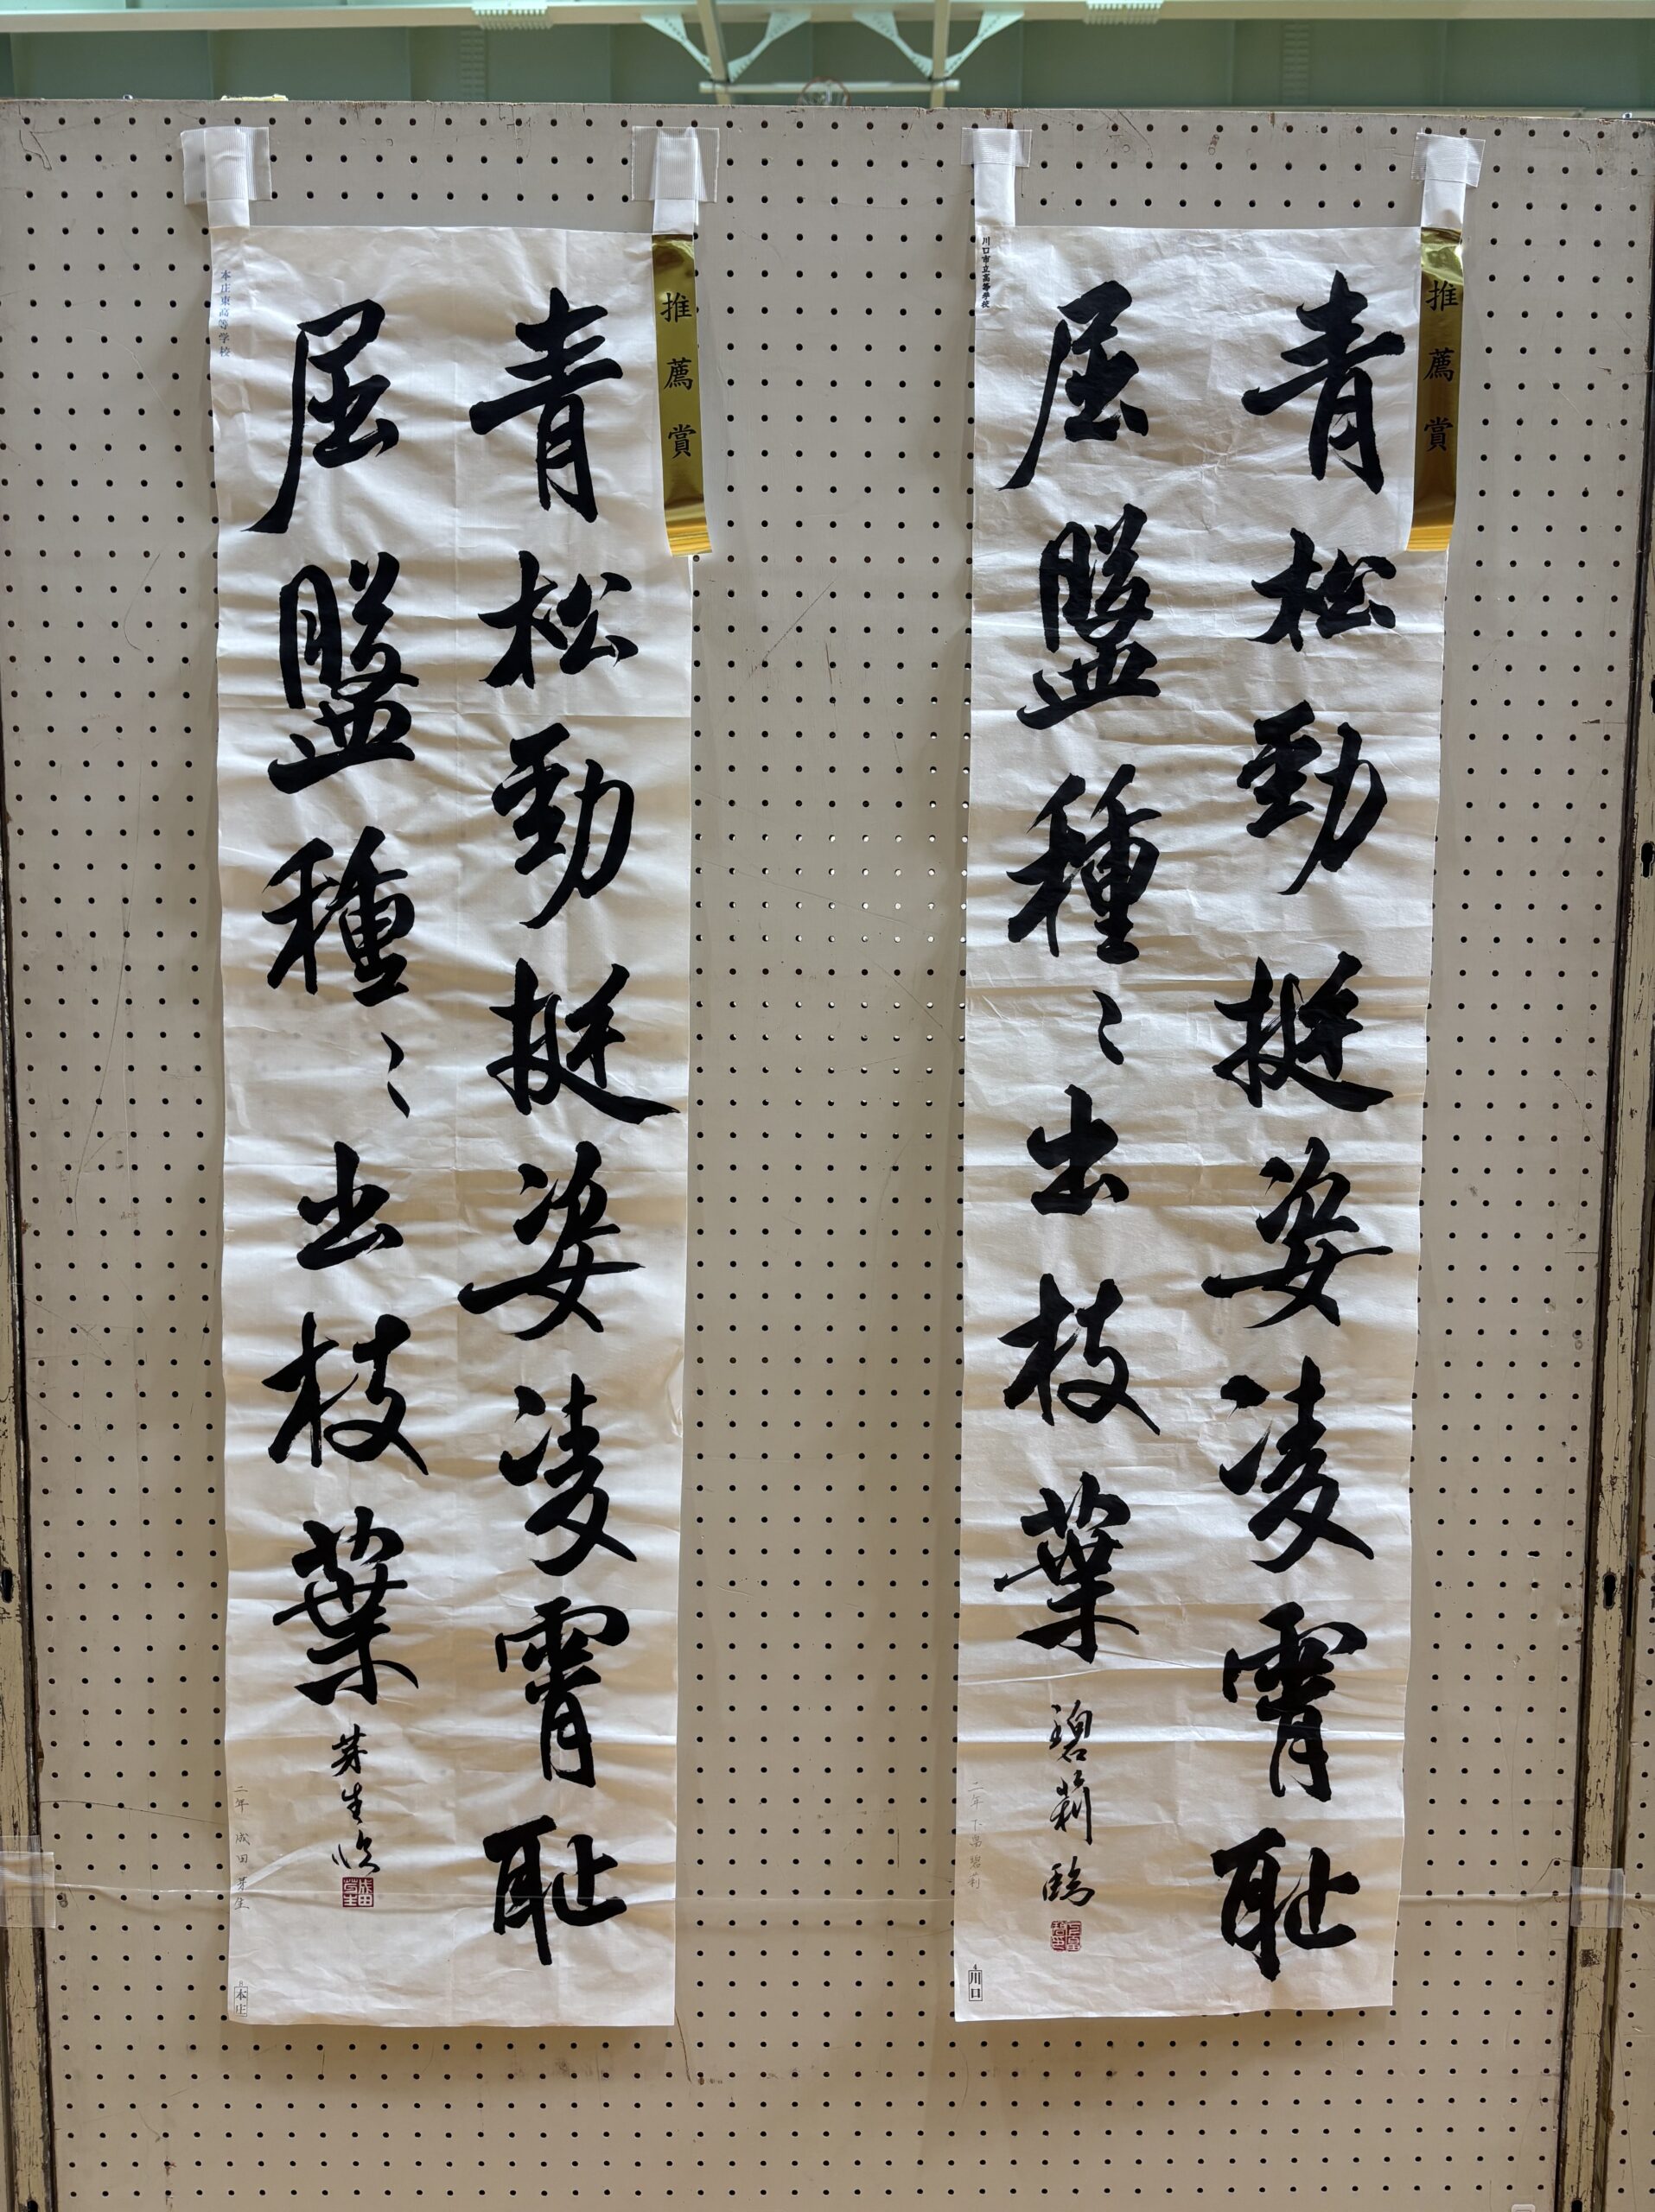 推薦賞
青松勁挺姿凌霄恥
屈盤種〻出枝葉
碧莉臨
川口市立高等学校
二年 下島 碧莉
川口
推薦賞
青松勁挺姿凌霄恥
屈盤種〻出枝葉
芽生臨
本庄東高等学校
二年 成田 芽生
本庄